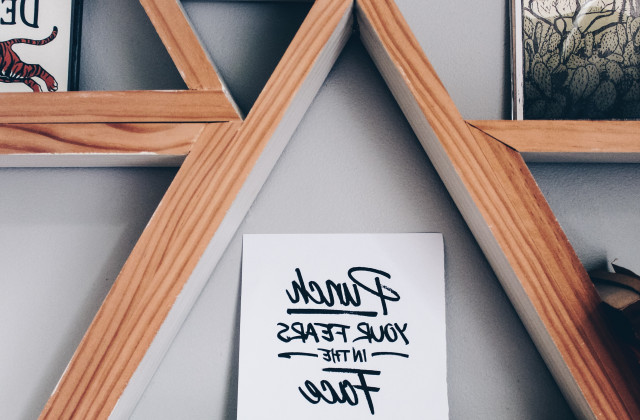 Punch
YOUR FEARS
IN THE
Face